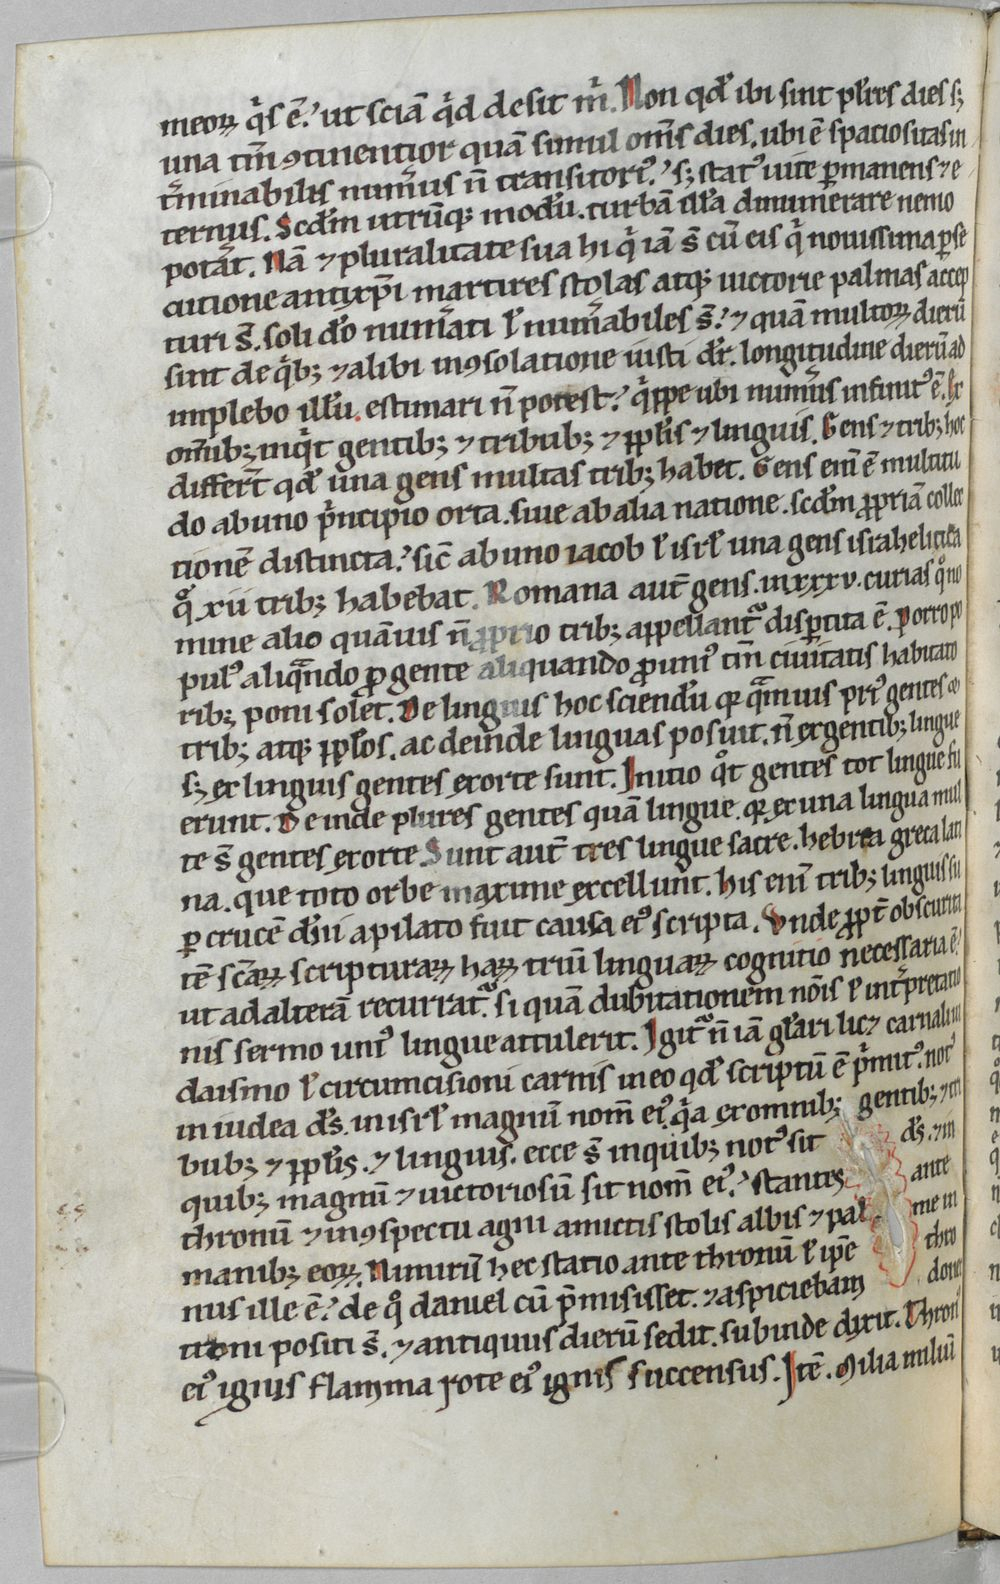 meoꝝ q̉s ē.ʼ ut sciā q̉d desit m̉. Non qđ ibi sint pl̄res dies sꝫ
una tm̄ ꝯtinentior quā simul om̄s dies. ubi ē spatiositas in
t̉minabilis num̉us n̄ transitoriꝰ.ʼ sꝫ statꝰ uite ꝑmanens ⁊ e
ternus. Scđm utrūqꝫ modū. turbā illā dinumerare nemo
pot̉at. Nā ⁊ pluralitate sua hi q̉ iā s̄ cū eis q̉ nouissima ꝑse
cutione antixp̄i martires stolas atqꝫ uictorie palmas accep
turi s̄. soli đo num̉ati ł num̉abiles s̄.ʼ ⁊ quā multoꝝ dierū
sint de q̉bꝫ ⁊ alibi in ꝯsolatione iusti dr̄. longitudine dierū ad
implebo illū. estimari n̄ potest.ʼ q̉ppe ubi num̉us infinitꝰ ē. Ex
om̄ibꝫ inq̉t gentibꝫ ⁊ tribubꝫ ⁊ ppl̄is ⁊ linguis. Gens ⁊ tribꝫ hoc
differt̄ qđ una gens multas tribꝫ habet. Gens em̄ ē multitu
do ab uno p̉ncipio orta. siue ab alia natione. scđm ꝓpriā collec
tionē distincta.ʼ sic̄ ab uno iacob ł isrł una gens israhelitica
q̊ xii tribꝫ habebat. Romana aut̄ gens. in xxxv. curias q̊ no
mine alio quāuis n̄ ꝓprio tribꝫ appellant᷑ disꝑtita ē. Porro po
pulꝰ aliqᷓndo ꝓ gente aliquando ꝓ uniꝰ tm̄ ciuitatis habitato
ribꝫ poni solet. De linguis hoc sciendū qꝛ qᷓmuis priꝰ gentes ac
tribꝫ atqꝫ ppl̄os. ac deinde linguas posuit. n̄ ex gentibꝫ lingue
sꝫ ex linguis gentes exorte sunt. Initio q̊t gentes tot lingue fu
erunt. Deinde plures gentes quā lingue. qꝛ ex una lingua mul
te s̄ gentes exorte. Sunt aut̄ tres lingue sacre. hebrea greca lati
na. que toto orbe maxime excellunt. his em̄ tribꝫ linguis su
ꝑ crucē dn̄i a pilato fuit causa eiꝰ scripta. Vnde ꝓpt̄ obscurita
tē sc̄aꝝ scripturaꝝ haꝝ triū linguaꝝ cognitio necessaria ē.ʼ
ut ad alterā recurrat᷑. si quā dubitationem nōis ł int̉pretatio
nis sermo uniꝰ lingue attulerit. Igit᷑ n̄ iā gl̄ari licꝫ carnali iu
daismo ł circumcisioni carnis in eo qđ scriptū ē p̉mitꝰ. notꝰ
in iudea đs. in isrł magnū nom̄ eiꝰ. q̉a ex omnibꝫ gentibꝫ ⁊ tri
bubꝫ ⁊ ppl̄is. ⁊ linguis. ecce s̄ in quibꝫ notꝰ sit đs. ⁊ in
quibꝫ magnū ⁊ uictoriosū sit nom̄ eiꝰ.ʼ Stantes ante
thronū ⁊ in ꝯspectu agni amictis stolis albis ⁊ pal me in
manibꝫ eoꝝ. Nimirū hec statio ante thronū ł ip̄e thro
nus ille ē.ʼ de q̊ daniel cū p̄misisset. ⁊ aspiciebam donec
troni positi s̄. ⁊ antiquus dierū sedit. subinde dixit. Thronꝰ
eiꝰ ignis flamma rote eiꝰ ignis succensus. Itē. Milia miliū